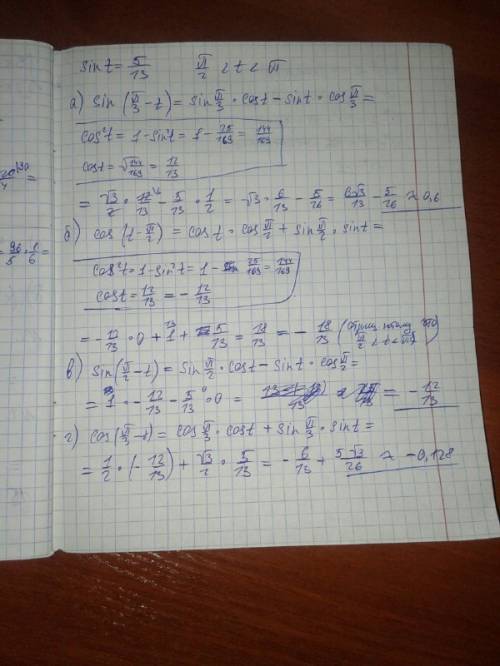 sin t = 5/13   π/2 < t < π
а) sin (π/3 - t) = sin π/3 · cos t - sin t · cos π/3 =
cos²t = 1 - sin²t = 1 - 25/169 = 144/169
cos t = √144/169 = 12/13
= √3/2 · 12/13 - 5/13 · 1/2 = √3 · 6/13 - 5/26 = 6√3/13 - 5/26 ≈ 0,6
б) cos (t - π/2) = cos t · cos π/2 + sin π/2 · sin t =
cos²t = 1 - sin²t = 1 - 25/169 = 144/169
cos t = 12/13 = - 12/13
= - 12/13 · 0 + 1 + 5/13 = 18/13 = - 18/13 (потому что π/2 < t < π)
в) sin (π/2 - t) = sin π/2 · cos t - sin t · cos π/2 =
= 1 · - 12/13 - 5/13 · 0 = = - 12/13
г) cos (π/3 - t) = cos π/3 · cos t + sin π/3 · sin t =
= 1/2 · (- 12/13) + √3/2 · 5/13 = - 6/13 + 5√3/26 ≈ -0,128